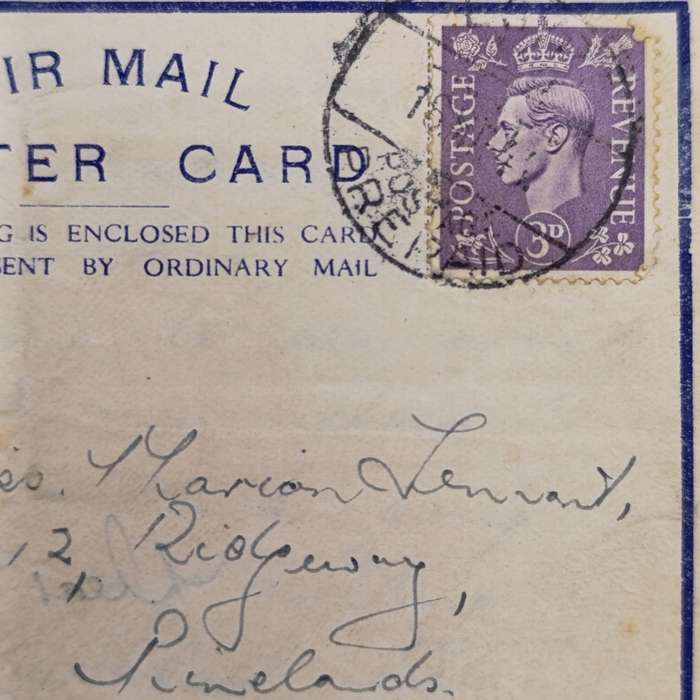 IR MAIL
TER CARD
G IS ENCLOSED THIS CARD
SENT BY ORDINARY MAIL
POSTAGE
REVENUE
3D
POST
PREPAID
ss. Marion Lennart,
12 Ridgeway,
Pinelands.